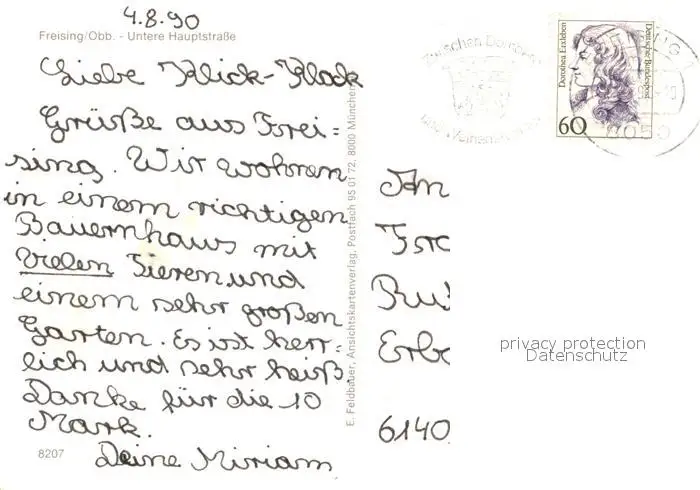 4.8.90
Freising/Obb. - Untere Hauptstraße
Liebe Klick-Klack
Grüße aus Frei=
sing. Wir wohnen
in einem richtigen
Bauernhaus mit
vielen Tieren und
einem sehr großen
Garten. Es ist herr=
lich und sehr heiß.
Danke für die 10
Mark.
Deine Miriam
8207
E. Feldbauer, Ansichtskartenverlag, Postfach 95 01 72, 8000 München
Zwischen Domberg
und Weihenstephan
Dorothea Erxleben
Deutsche Bundespost
60
8050
An
Frau
Erb
6140
privacy protection
Datenschutz